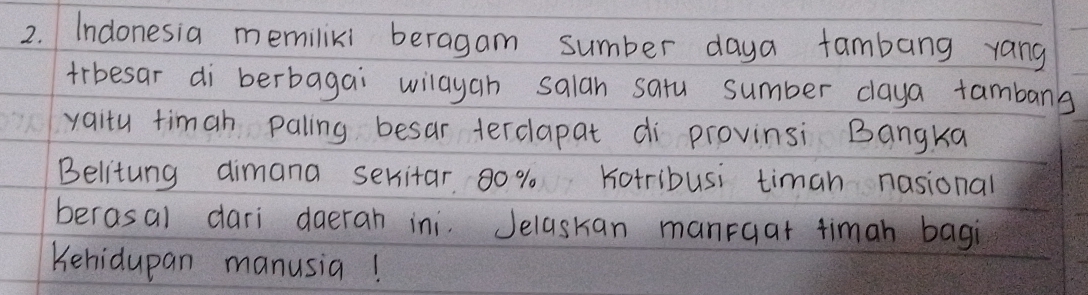 2. Indonesia memiliki beragam sumber daya tambang yang
trbesar di berbagai wilayah salah satu sumber daya tambang
yaitu timah paling besar terdapat di provinsi Bangka
Belitung dimana sekitar 80% kotribusi timah nasional
berasal dari daerah ini. Jelaskan manfaat timah bagi
Kehidupan manusia !